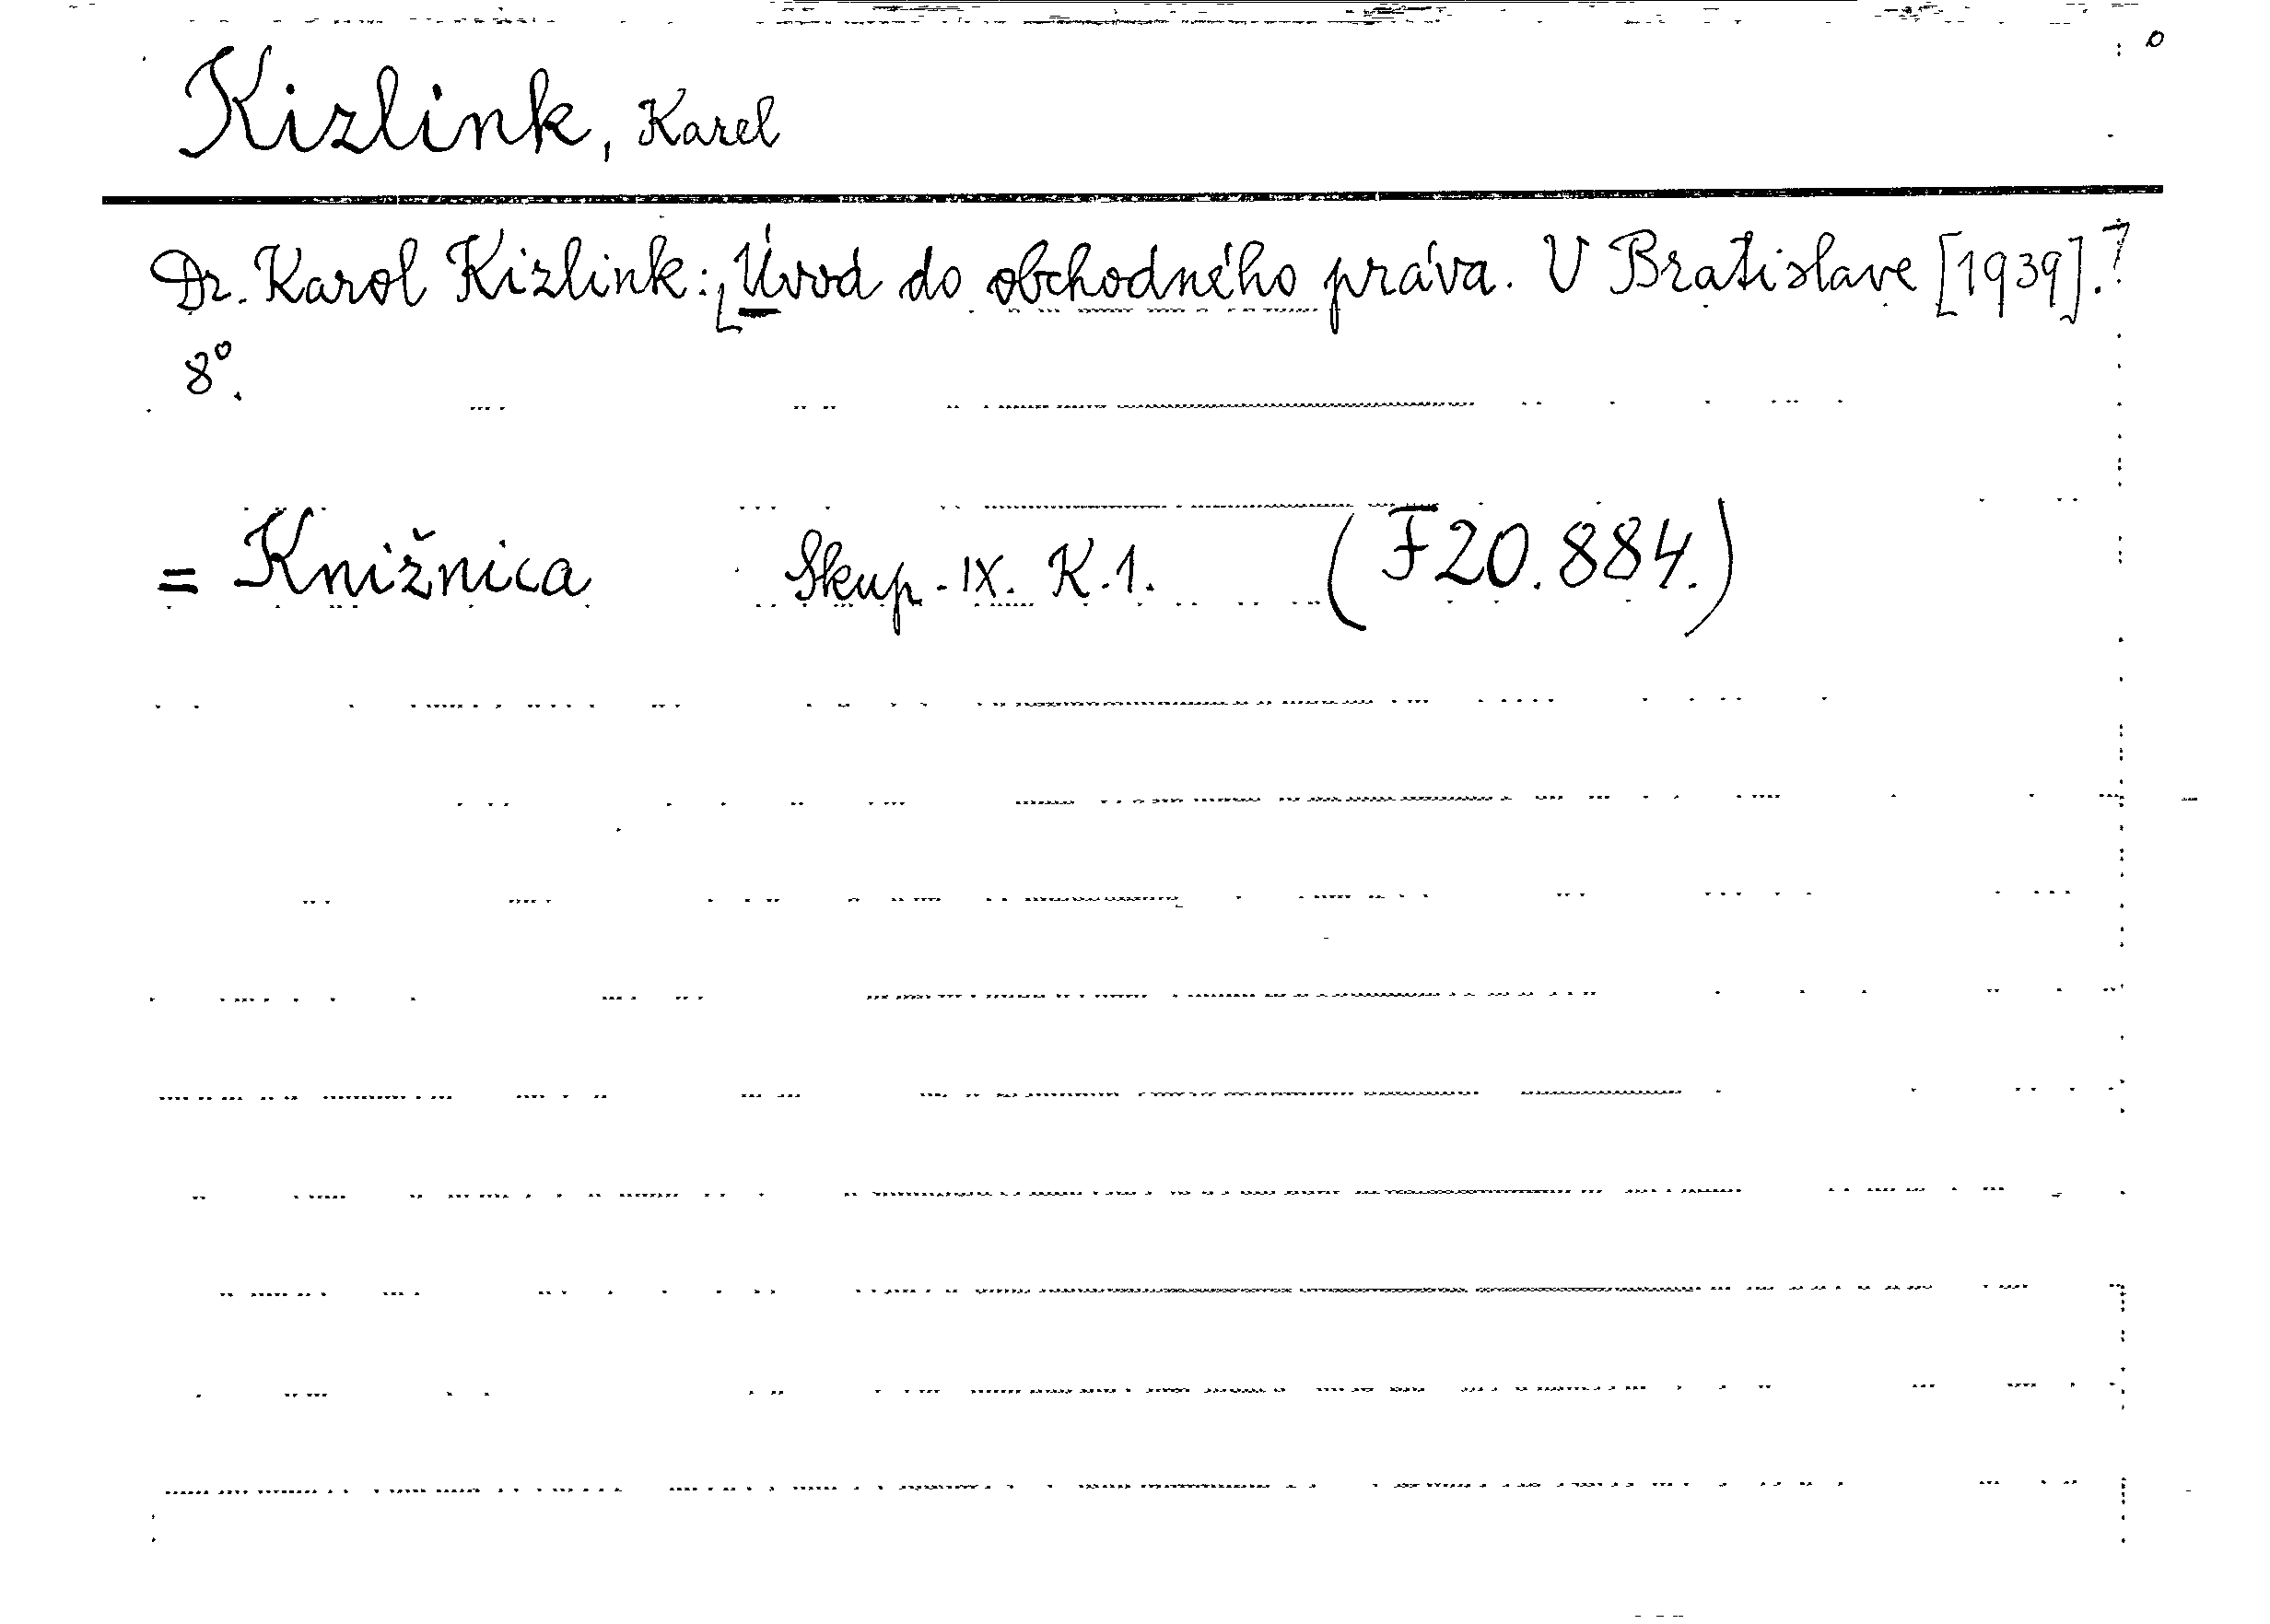 Kizlink, Karel
Dr. Karol Kizlink: Úvod do obchodného práva. V Bratislave [1939].
8°.
= Knižnica Skup. IX. K.1. (F20.884.)